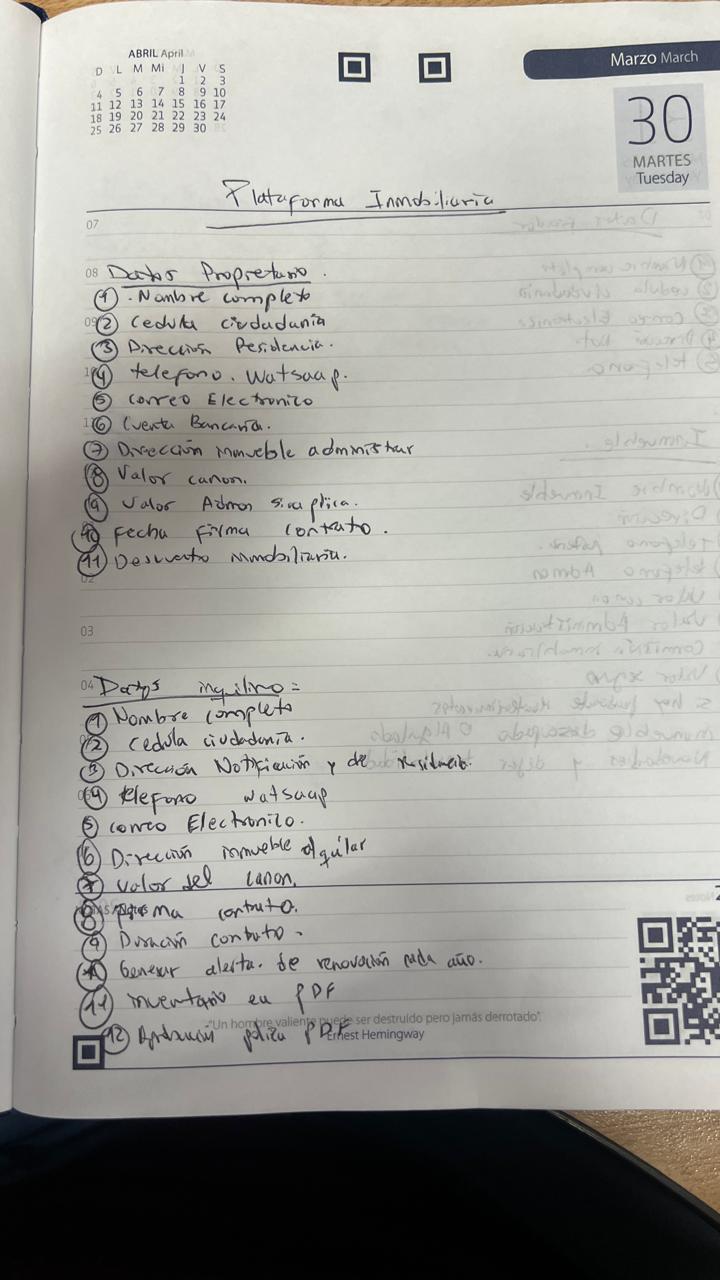 ABRIL April
D L M Mi J V S
1 2 3
4 5 6 7 8 9 10
11 12 13 14 15 16 17
18 19 20 21 22 23 24
25 26 27 28 29 30
Marzo March
30
MARTES
Tuesday
Plataforma Inmobiliaria
07
08 Datos Propietario.
1 . Nombre completo
2 cedula ciudadanía
3 Dirección Residencia.
4 telefono. Watsaap.
5 correo Electronico
6 Cuenta Bancaria.
7 Dirección inmueble administrar
8 Valor canon.
9 Valor Admon si aplica.
10 Fecha firma contrato.
11 Descuento inmobiliaria.
02
03
04 Datos inquilino =
1 Nombre completo
2 cedula ciudadanía.
3 Dirección Notificación y de residencia.
4 telefono watsaap
5 correo Electronico.
6 Dirección inmueble alquilar
7 Valor del canon.
8 firma contrato.
9 Duración contrato.
10 Generar alerta. de renovación cada año.
11 inventario en PDF
"Un hombre valiente puede ser destruido pero jamás derrotado".
12 poliza PDF
Ernest Hemingway